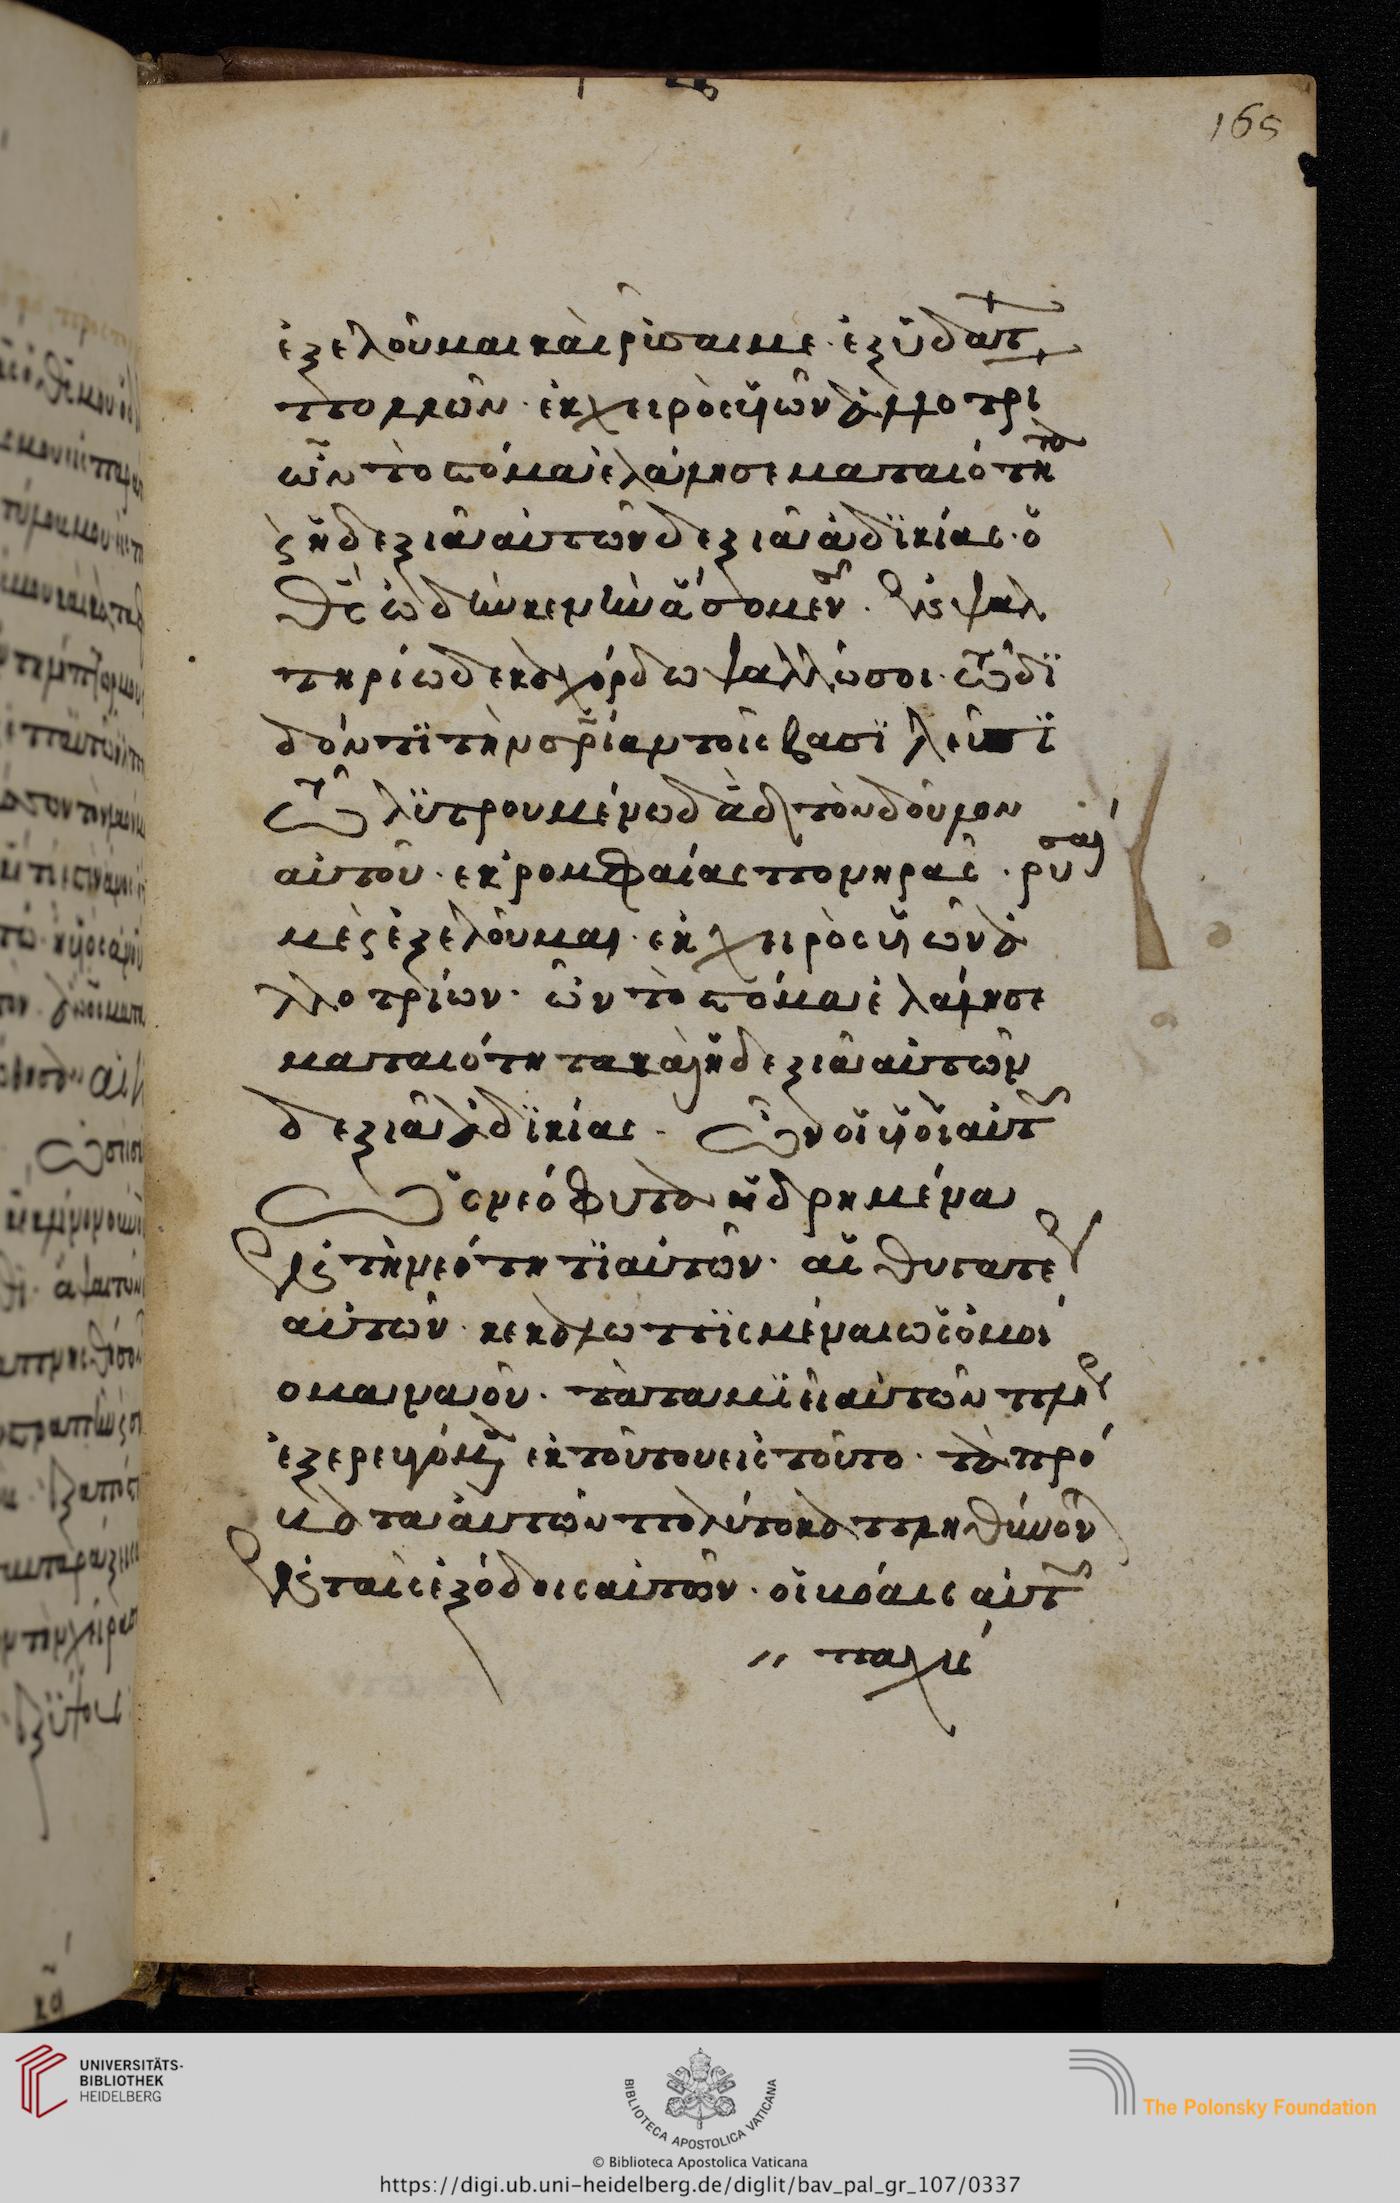 165
ἐξελοῦμαι καὶ ρῦσαι με. ἐξ ὑδάτ
πολλῶν. ἐκ χειρὸς υἱῶν ἀλλοτρι
ων ὧν τὸ στόμα ἐλάλησε ματαιότητα
ϗ ἡ δεξιὰ αὐτῶν δεξιὰ ἀδϊκίας. ὁ
θς ὠδὴν καινὴν ἄσομαι σοι. ἐν ψαλ
τηρίω δεκαχόρδω ψαλλῶ σοι. τῶ δϊ
δόντϊ τὴν σρίαν τοῖς βασϊλεῦσϊ
τῶ λϋτρουμένω δαδ τὸν δοῦλον
αὐτοῦ. ἐκ ρομφαίας πονηρᾶς. ρῦσαί
με ϗ ἐξελοῦ μαι. ἐκ χειρὸς υἱῶν ἀ
λλοτρίων. ὧν τὸ στόμα ἐλάλησε
ματαιότητα καὶ ἡ δεξιὰ αὐτῶν
δεξιὰ ἀδϊκίας. ὧν οἱ υἱοὶ αὐτ
ὡς νεόφυτα ἡδρημένα
ἐν τῆ νεότητϊ αὐτῶν. αἱ θυγατέρες
αὐτῶν. κεκαλωπϊσμέναι ὡς ὁμοί
ομα ναοῦ. τὰ ταμϊεῖα αὐτῶν πλήρη
ἐξερευγόμενα ἐκ τούτου εἰς τοῦτο. τὰ πρό
βατα αὐτῶν πολύτοκα πληθύνον
ἐν ταῖς ἐξόδοις αὐτῶν. οἱ βόαις αὐτ
παχεῖ
UNIVERSITÄTS-
BIBLIOTHEK
HEIDELBERG
BIBLIOTECA APOSTOLICA VATICANA
The Polonsky Foundation
© Biblioteca Apostolica Vaticana
https://digi.ub.uni-heidelberg.de/diglit/bav_pal_gr_107/0337